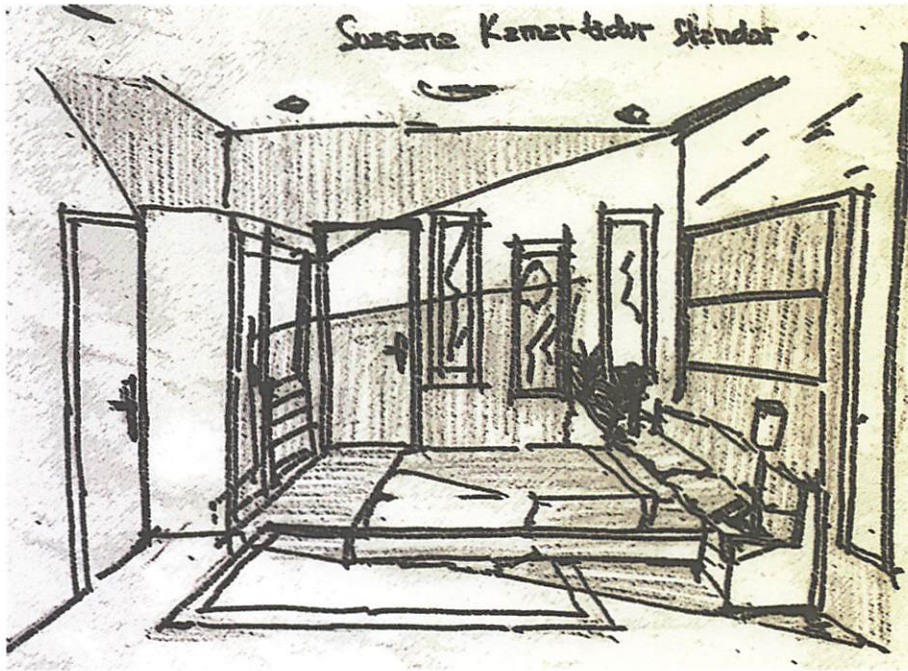 Suasana Kamar tidur Standar.